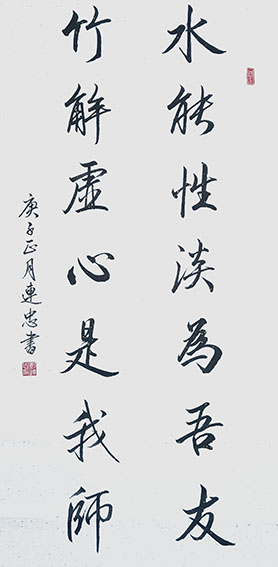 水能性淡為吾友
竹解虛心是我師
庚子正月連忠書